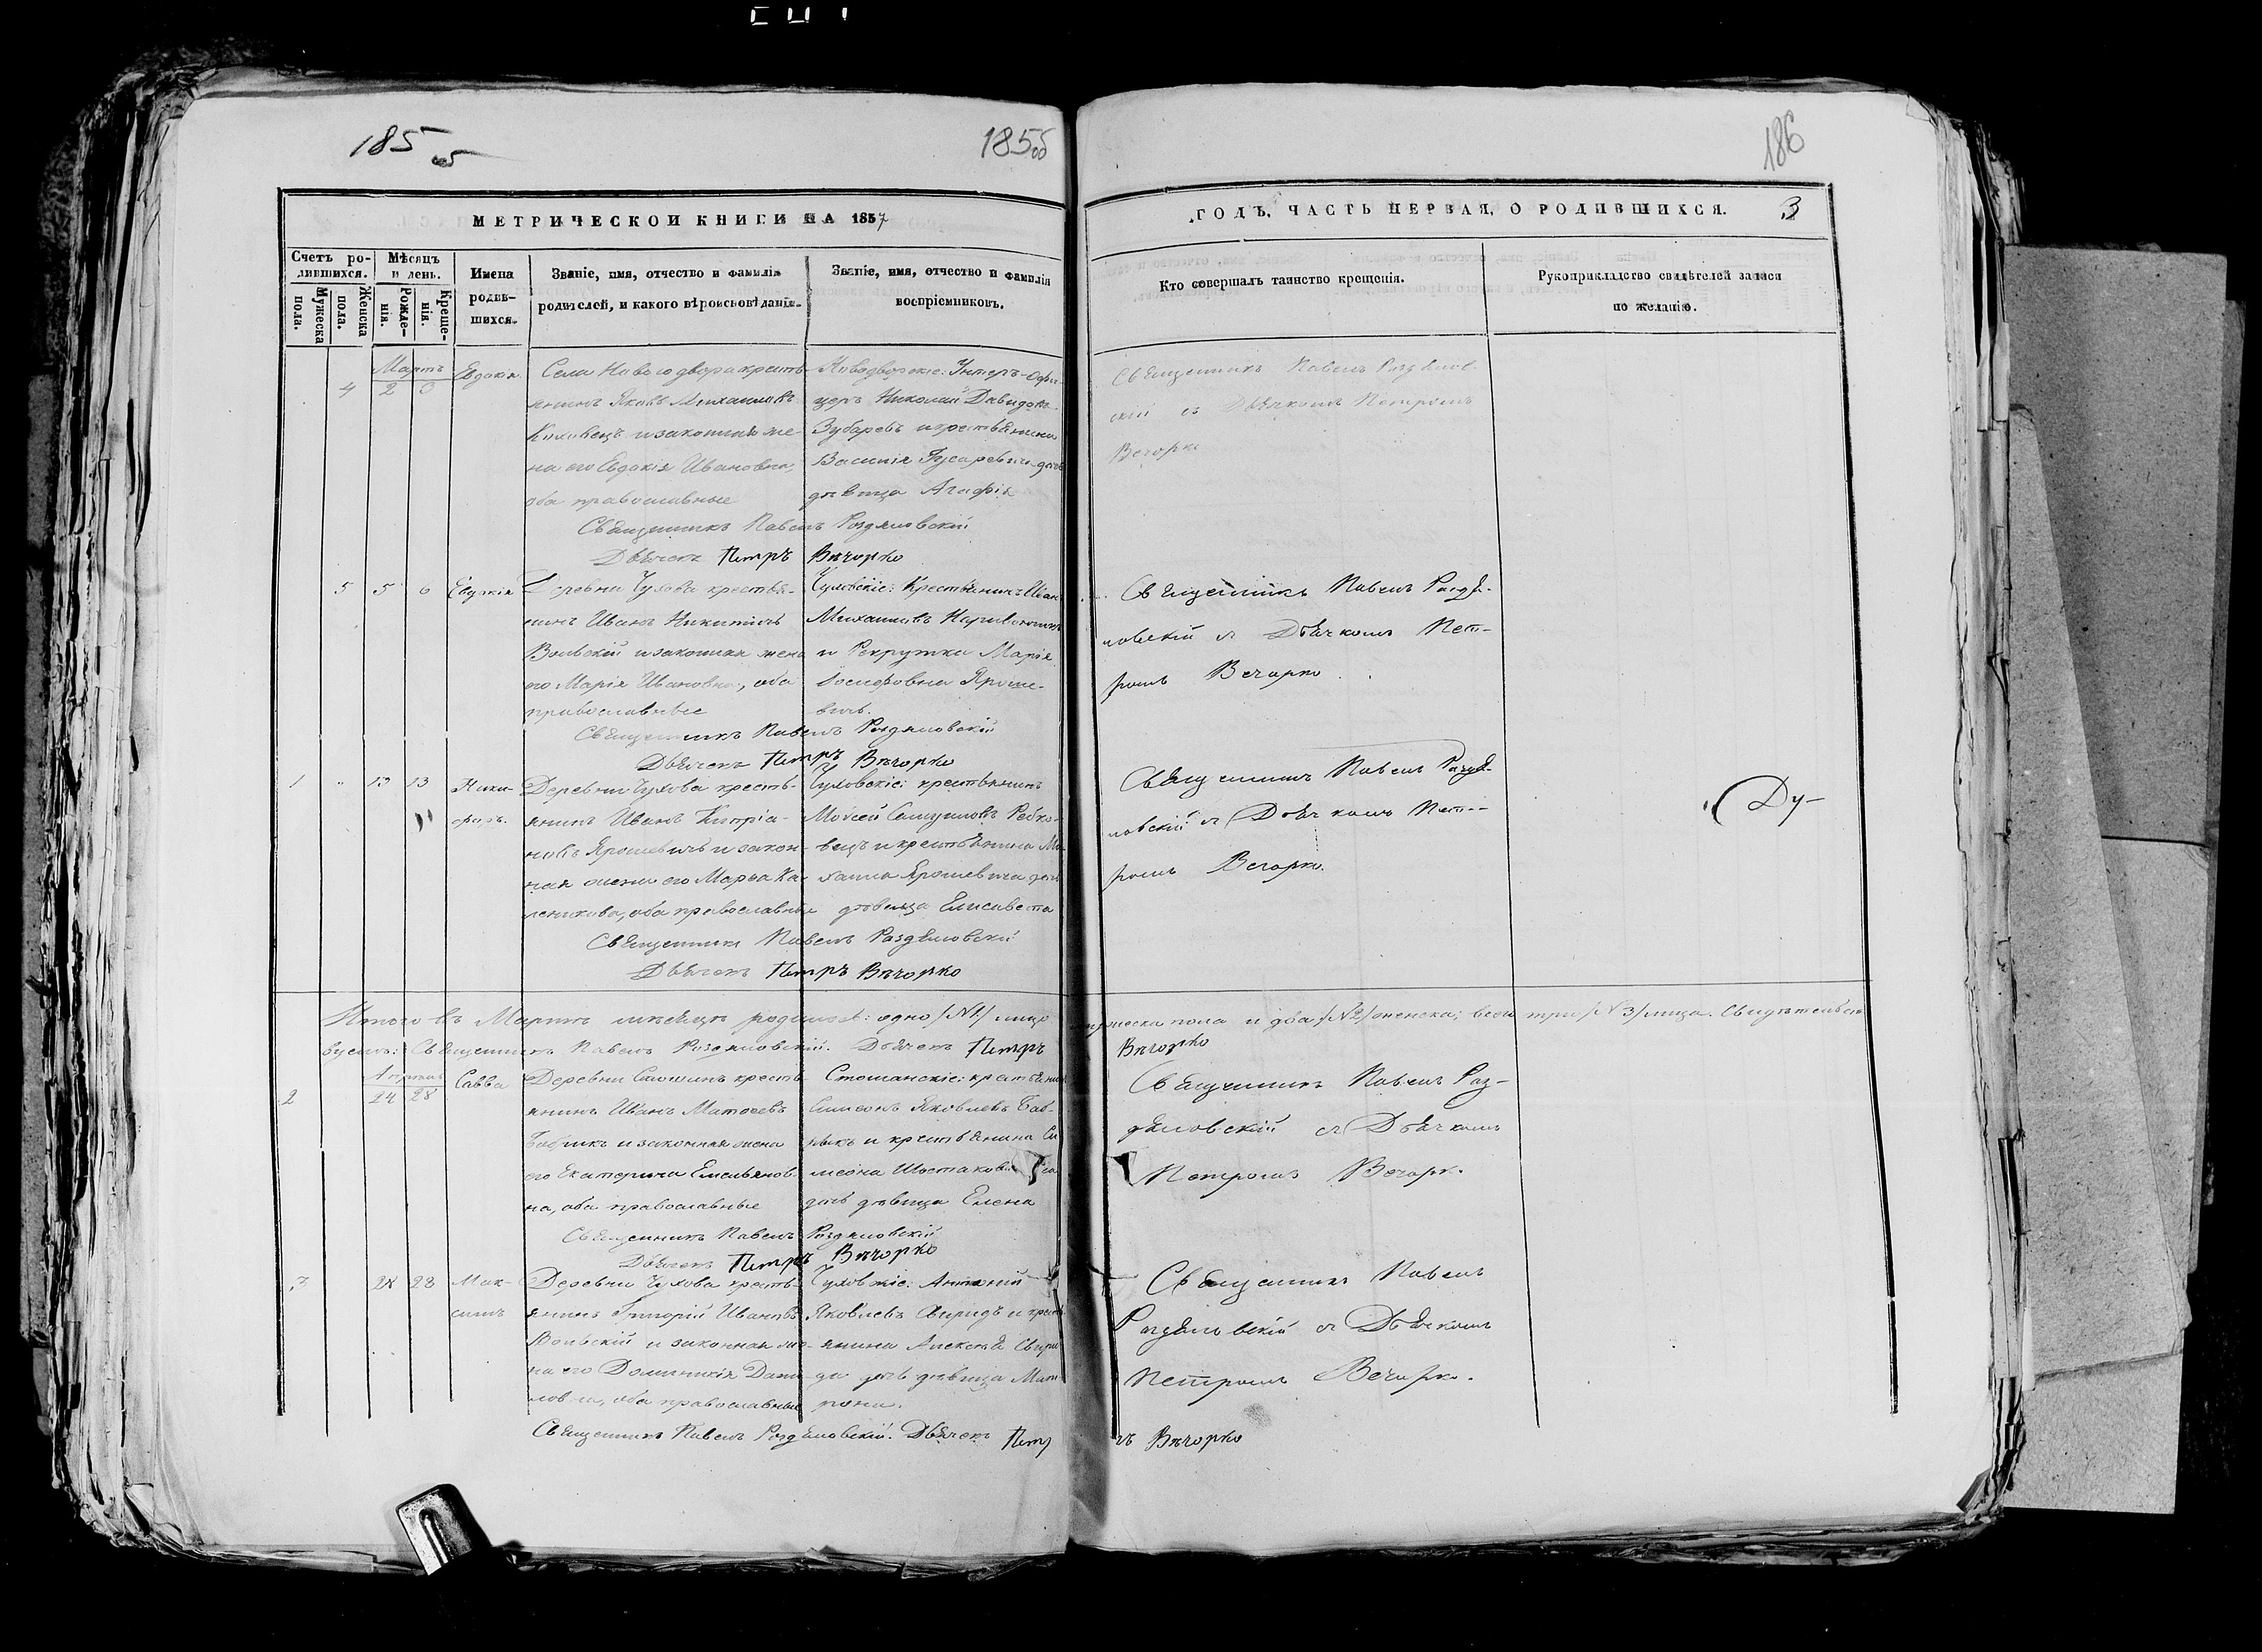 185
185об
186
МЕТРИЧЕСКОЙ КНИГИ НА 1857
ГОДЪ, ЧАСТЬ ПЕРВАЯ, О РОДИВШИХСЯ.
3
Счетъ ро-
дившихся.
Мужеска
пола.
Женска
пола.
Мѣсяцъ
и день.
Рожде-
нія.
Креще-
нія.
Имена
родив-
шихся.
Званіе, имя, отчество и фамилія
родителей, и какого вѣроисповѣданія.
Званіе, имя, отчество и фамилія
воспріемниковъ.
Кто совершалъ таинство крещенія.
Рукоприкладство свидѣтелей записи
по желанію.
4
Мартъ
2 3
Евдокія
Села Новаго двора кресть-
янинъ Яковъ Михаиловъ
и законная же-
на его Евдокія Ивановна,
оба православные
Новодворскіе: Унтеръ-Офи-
церъ Николай Давидовъ
Зубаревъ и крестьянина
Василія Гусаревича дочь
дѣвица Агафія
Священникъ Павелъ Раздяловскій
Дьячекъ Петръ Вѣчорко
Священникъ Павелъ Раздялов-
скій съ Дьячкомъ Петромъ
Вечорко
5 5 6
Евдокія
Деревни Чухова крестья-
нинъ Иванъ Никитинъ
Вольскій и законная жена
его Марія Ивановна, оба
православные
Чуховскіе: Крестьянинъ Иванъ
Михаиловъ
и Рекрутка Марія
Іосифовна Яроше-
вичъ.
Священникъ Павелъ Раздяловскій
Дьячекъ Петръ Вѣчорко
Священникъ Павелъ Раздя-
ловскій съ Дьячкомъ Пет-
ромъ Вечорко
1 " 13 13
Ники-
форъ.
Деревни Чухова кресть-
янинъ Иванъ Кипріа-
новъ Ярошевичъ и закон-
ная жена его Марѳа Ка-
леникова, оба православные
Чуховскіе: крестьянинъ
Моисей Самуиловъ Рабко-
вецъ и крестьянина Ми-
хаила Ярошевича дочь
дѣвица Елисавета
Священникъ Павелъ Раздяловскій
Дьячекъ Петръ Вѣчорко
Священникъ Павелъ Раздя-
ловскій съ Дьячкомъ Пет-
ромъ Вечорко.
Ду-
Итого въ Мартѣ мѣсяцѣ родилось: одно /№1/ лицо мужеска пола и два /№2/ женска; всего три /№3/ лица. Свидѣтельст-
вуемъ: Священникъ Павелъ Раздяловскій. Дьячекъ Петръ Вѣчорко
Апрѣль
2 24 28
Савва
Деревни Стошанъ кресть-
янинъ Иванъ Матѳеевъ
Бабрикъ и законная жена
его Екатерина Емельянов-
на, оба православные
Стошанскіе: крестьянинъ
Симеонъ Яковлевъ Баб-
рикъ и крестьянина Си-
меона
дочь дѣвица Елена
Священникъ Павелъ Раздяловскій
Дьячекъ Петръ Вѣчорко
Священникъ Павелъ Раз-
дяловскій съ Дьячкомъ
Петромъ Вечорко
3 28
Мак-
симъ
Деревни Чухова кресть-
янинъ Григорій Ивановъ
Вольскій и законная же-
на его Доминикія Дани-
ловна, оба православные
Чуховскіе: Антоній
Яковлевъ Свиридъ и кресть-
янина Алексѣя Свири-
да дочь дѣвица Мат-
рона.
Священникъ Павелъ Раздяловскій. Дьячекъ Петръ Вѣчорко
Священникъ Павелъ
Раздяловскій съ Дьячкомъ
Петромъ Вечорко.